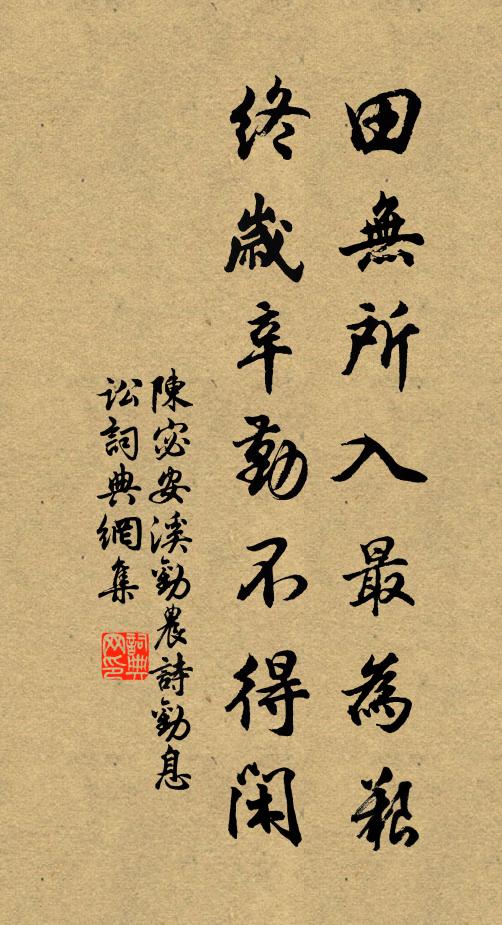 田無所入最為艱
終歲辛勤不得閑
陳宓安溪勸農詩勸息
訟詞典網集
詞典网印